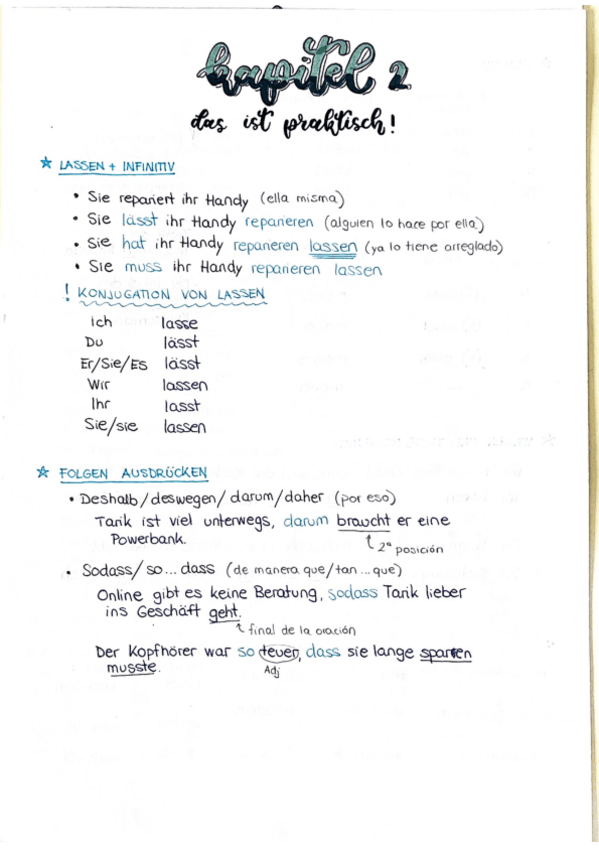 kapitel 2
das ist praktisch!
LASSEN + INFINITIV
• Sie repariert ihr Handy (ella misma)
• Sie lässt ihr Handy reparieren (alguien lo hace por ella)
• Sie hat ihr Handy reparieren lassen (ya lo tiene arreglado)
• Sie muss ihr Handy reparieren lassen
! KONJUGATION VON LASSEN
Ich lasse
Du lässt
Er/Sie/Es lässt
Wir lassen
Ihr lasst
Sie/sie lassen
FOLGEN AUSDRÜCKEN
• Deshalb/deswegen/darum/daher (por eso)
Tarik ist viel unterwegs, darum braucht er eine
Powerbank.
2ª posición
• Sodass/so...dass (de manera que/tan...que)
Online gibt es keine Beratung, sodass Tarik lieber
ins Geschäft geht.
final de la oración
Der Kopfhörer war so teuer, dass sie lange sparen
musste.
Adj